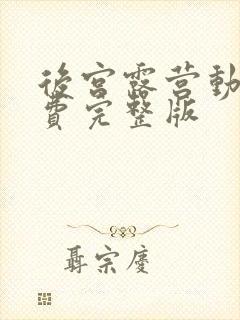 後宮露营動
費完整版
聶宗慶